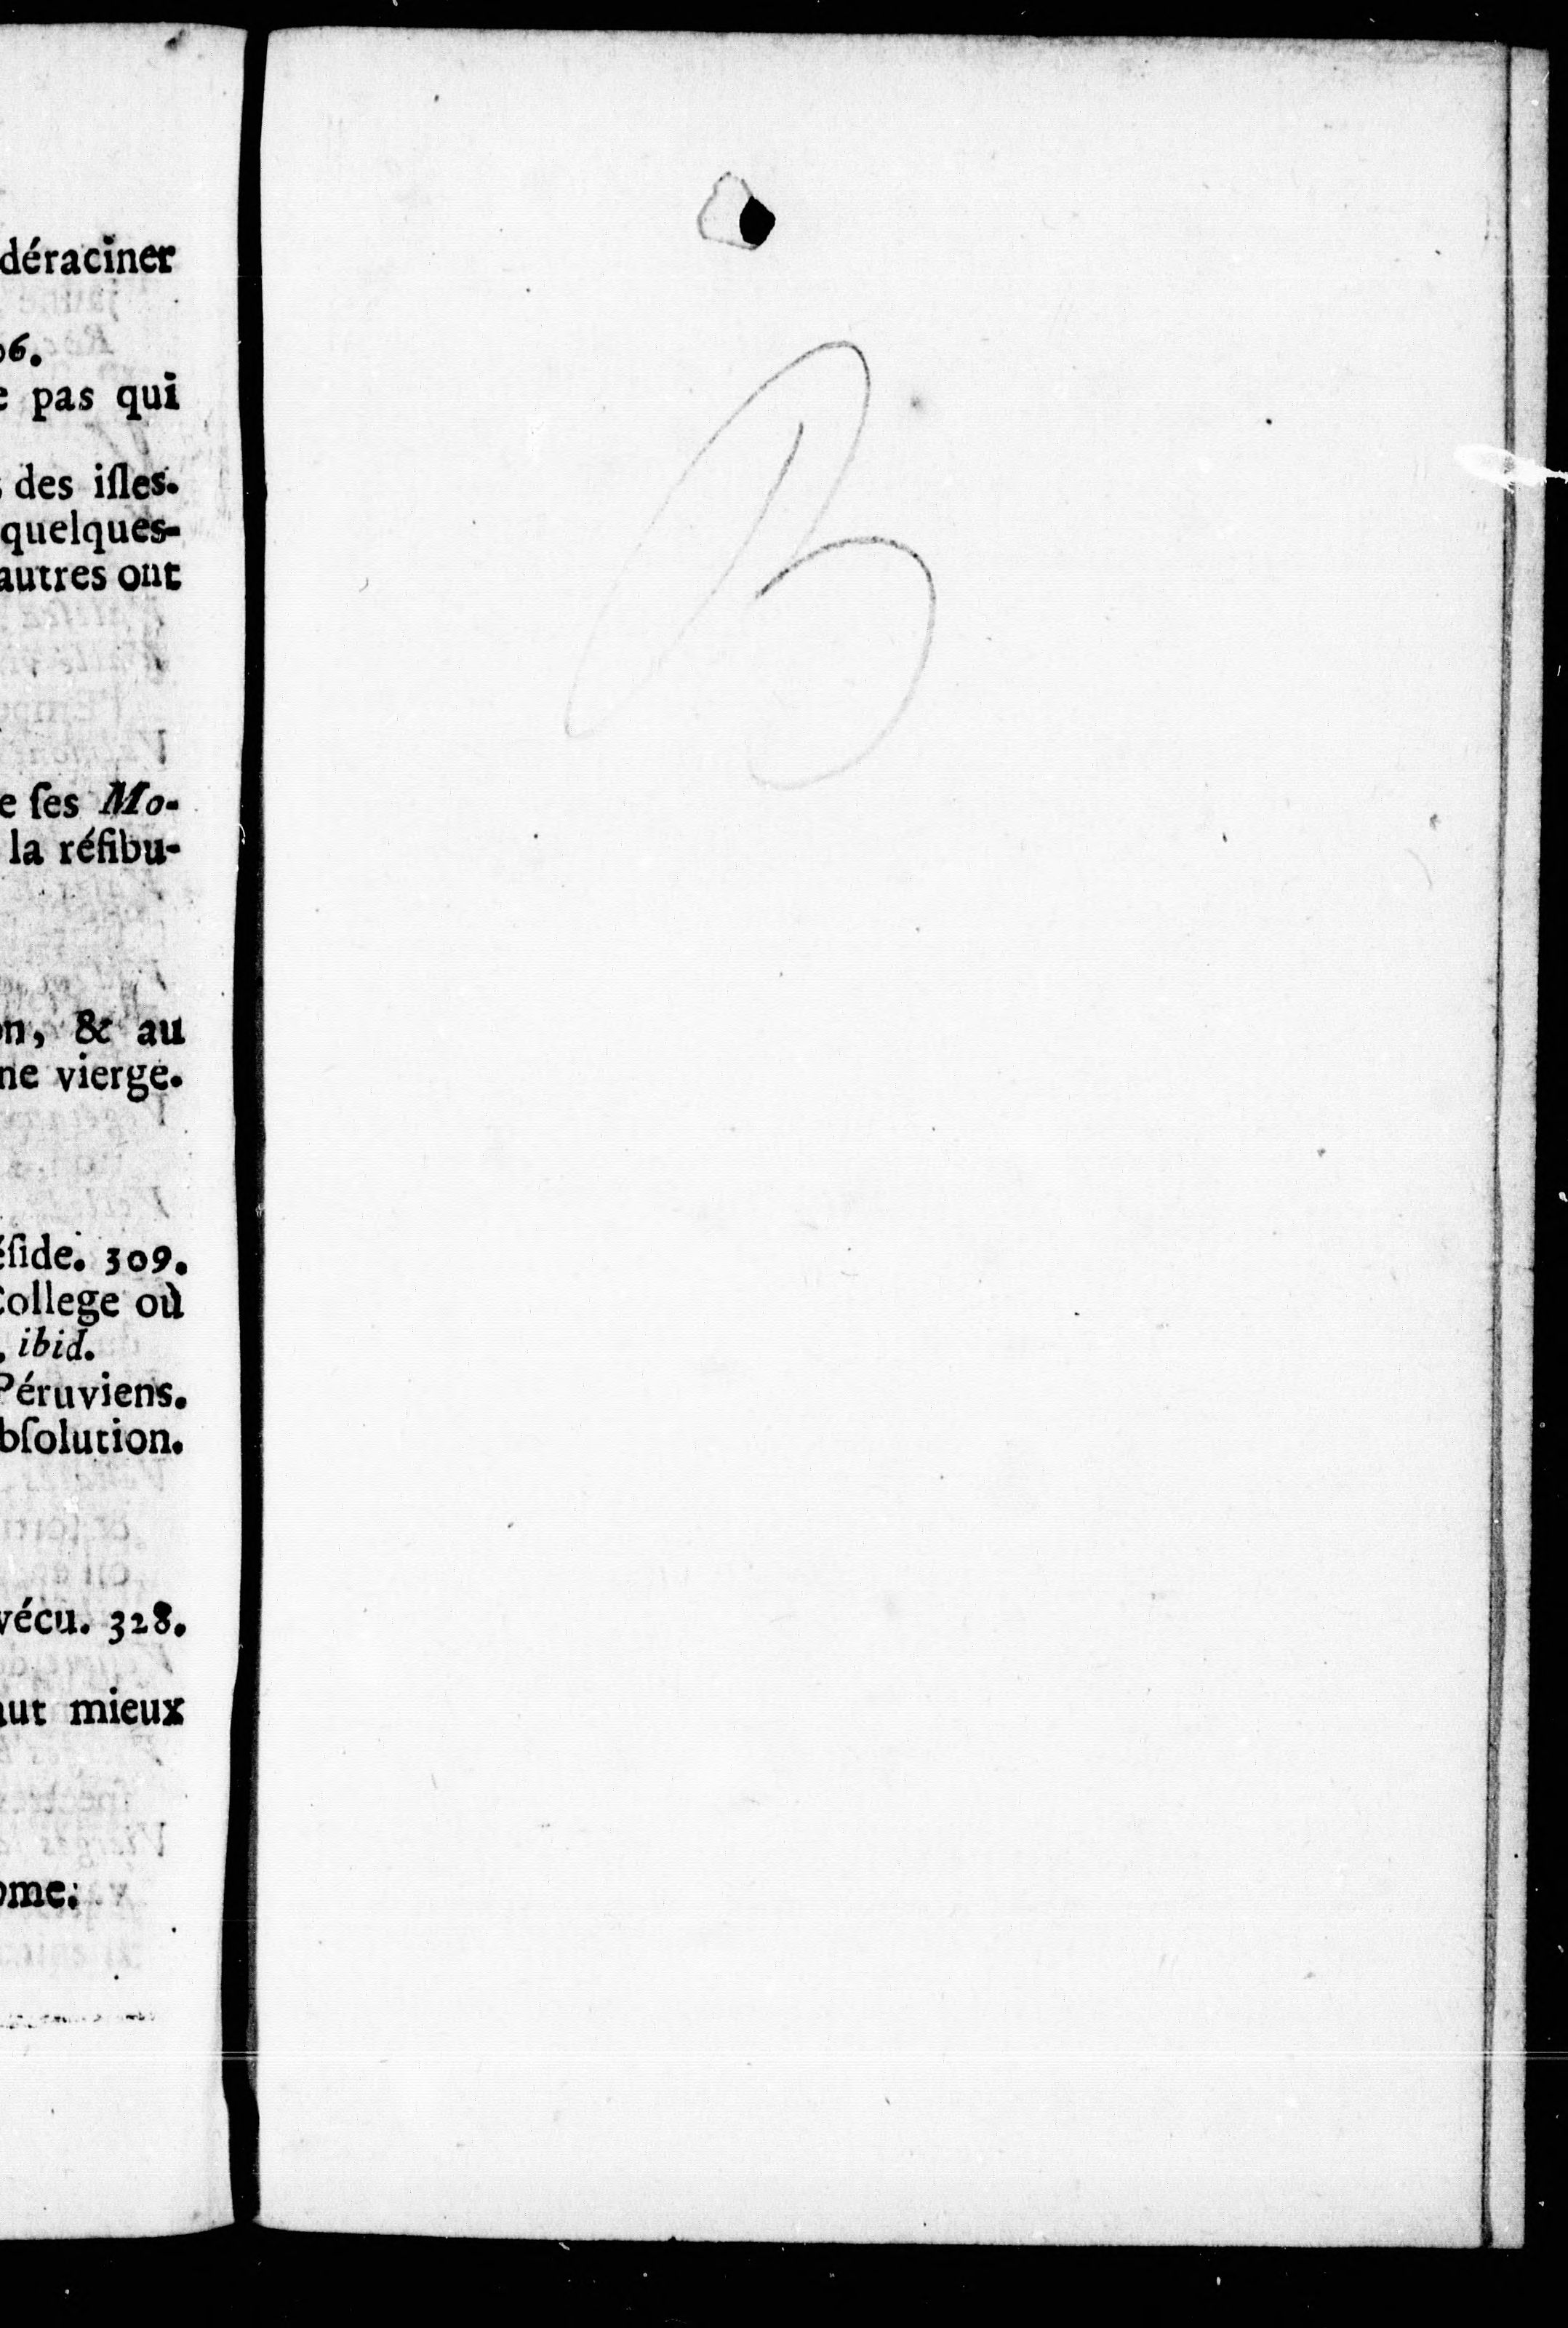 déraciner
06.
e pas qui
s des iſles.
quelques-
autres ont
e ſes Mo-
la réfibu-
on, & au
ne vierge.
éſide. 309.
College où
, ibid.
Péruviens.
bſolution.
vécu. 328.
aut mieux
ome.
B